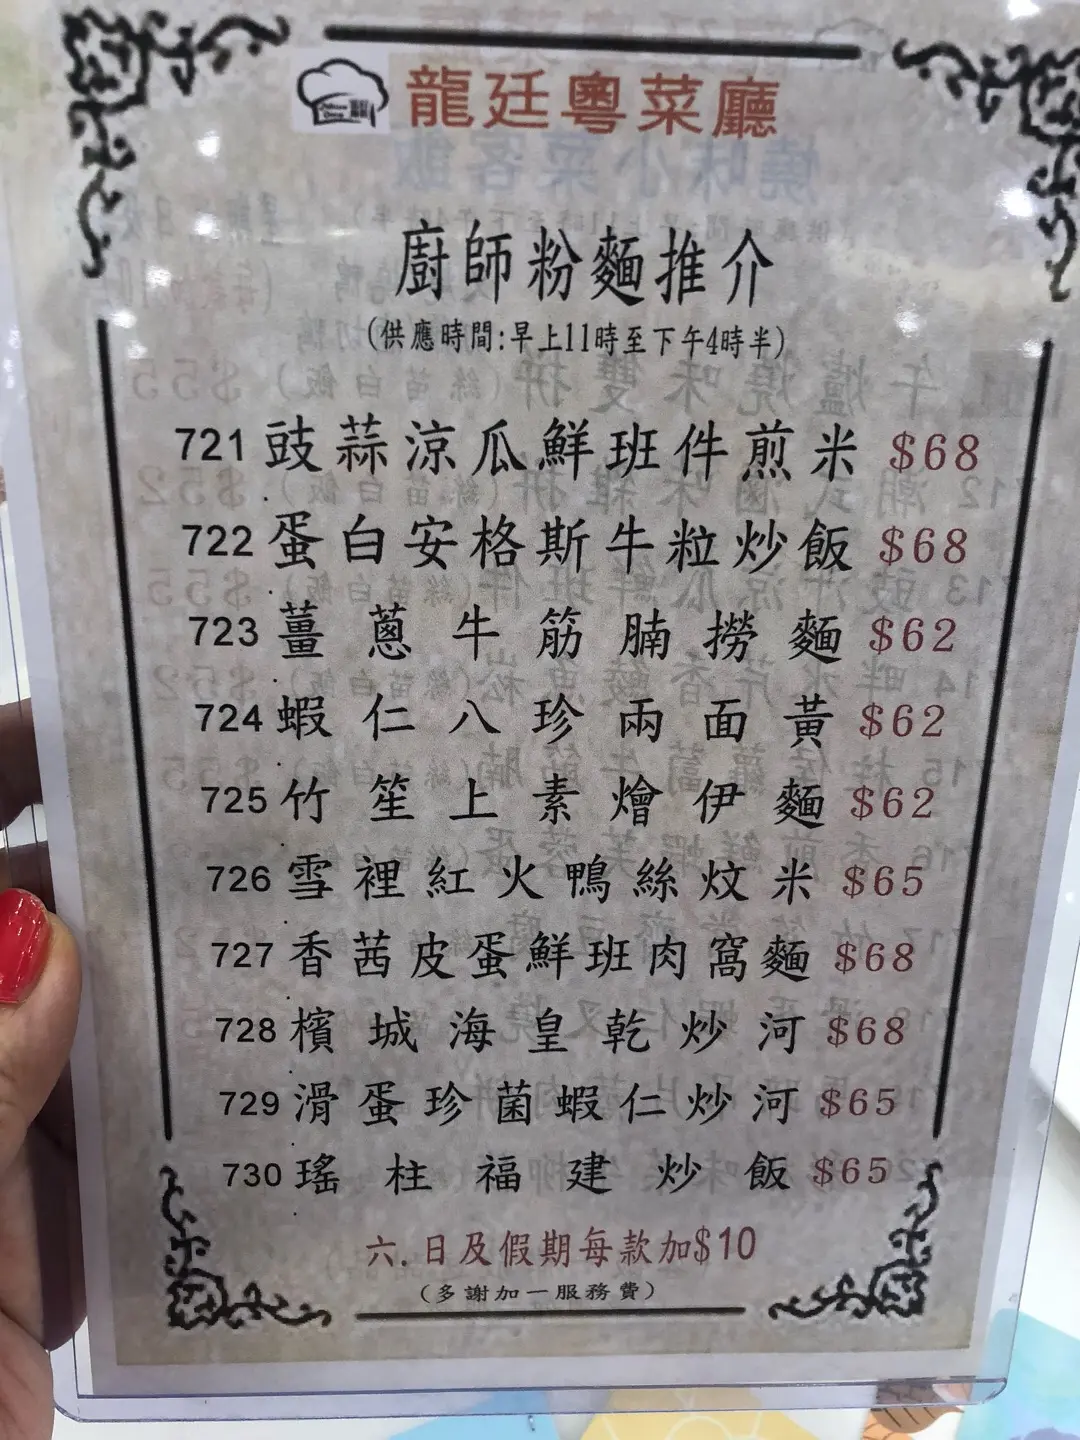 龍廷粵菜廳
廚師粉麵推介
(供應時間:早上11時至下午4時半)
721 豉蒜涼瓜鮮班件煎米 $68
722 蛋白安格斯牛粒炒飯 $68
723 薑蔥牛筋腩撈麵 $62
724 蝦仁八珍兩面黃 $62
725 竹笙上素燴伊麵 $62
726 雪裡紅火鴨絲炆米 $65
727 香茜皮蛋鮮班肉窩麵 $68
728 檳城海皇乾炒河 $68
729 滑蛋珍菌蝦仁炒河 $65
730 瑤柱福建炒飯 $65
六.日及假期每款加$10
(多謝加一服務費)